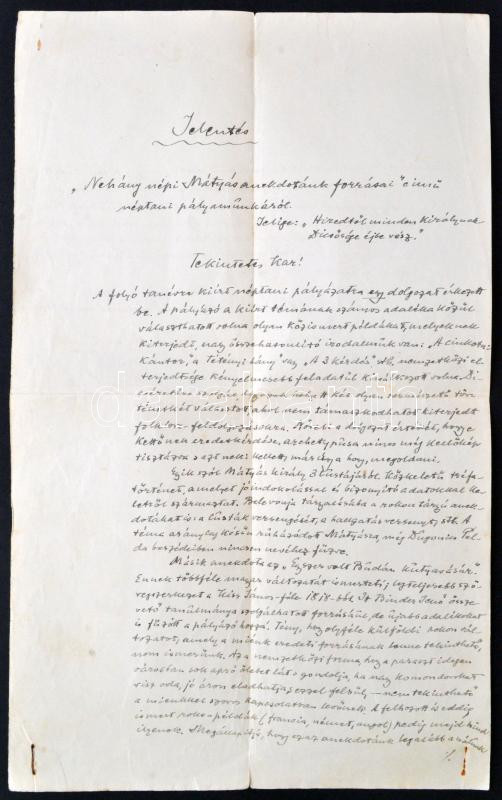 Jelentés
„Nehány népi Mátyás anekdotánk forrásai" című
néptani pályamunkáról.
Jelige: „Híredtől minden királynak
Dicsősége éjbe vész."
Tekintetes Kar!
A folyó tanévre kiírt néptani pályázatra egy dolgozat érkezett
be. A pályázó a kiírt témának számos adaléka közül
választhatott volna olyan közismert példákat, melyeknek
kiterjedt, nagy összehasonlító irodalmuk van: „A cinkotai
kántor", a Tétényi lány vagy „A 3 kérdés" stb. nemzetközi el-
terjedtsége kényelmesebb feladatúl kínálkozott volna. Di-
cséretére szolgál, hogy két olyan természetű tör-
ténetkét választott, ahol nem támaszkodhatott kiterjedt
folklore-feldolgozásokra. hogy e
kettőnek eredetkérdése, archetypusa nincs még kellőkép
tisztázva megoldani.
Egik szól Mátyás király 3 lustájáról. Közkeletű tréfa-
történet, amelyet jó indokolással és bizonyító adatokkal ke-
letről származtat. Belevonja tárgyalásába a rokon tárgyú anek-
dotákat is: a lusták versengését, a hallgatás versenyt, stb. A
téma aránylag későn ruházódott Mátyásra, még Dugonics Pél-
dabeszédeiben nincsen nevéhez fűzve.
Másik anekdota az „Egyszer volt Budán kutyavásár."
Ennek többféle magyar változatát ismerteti; legteljesebb szö-
vegszerkezet a Kiss János-féle 1818-ból. Itt Binder Jenő össze-
vető tanulmánya szolgálhatott forrásúl, de újabb adalékokat
is fűzött a pályázó hozzá. Tény, hogy olyféle külföldi rokon vál-
tozatot, amely a miénk eredeti forrásának lenne tekinthető,
nem ismerünk. Az a nemzetközi forma, hogy a paraszt idegen
városban sok apró ölebet lát s gondolja, ha nagy komondorokat
visz oda, jó áron eladhatja s ezzel felsül, – nem tekinthető
a miénkkel szoros kapcsolatban levőnek. A felhozott is eddig
ismert rokon példák (francia, német, angol) pedig majd mind
ilyenek. Megállapítja, hogy ez az anekdotánk legalább a nálunk
./.